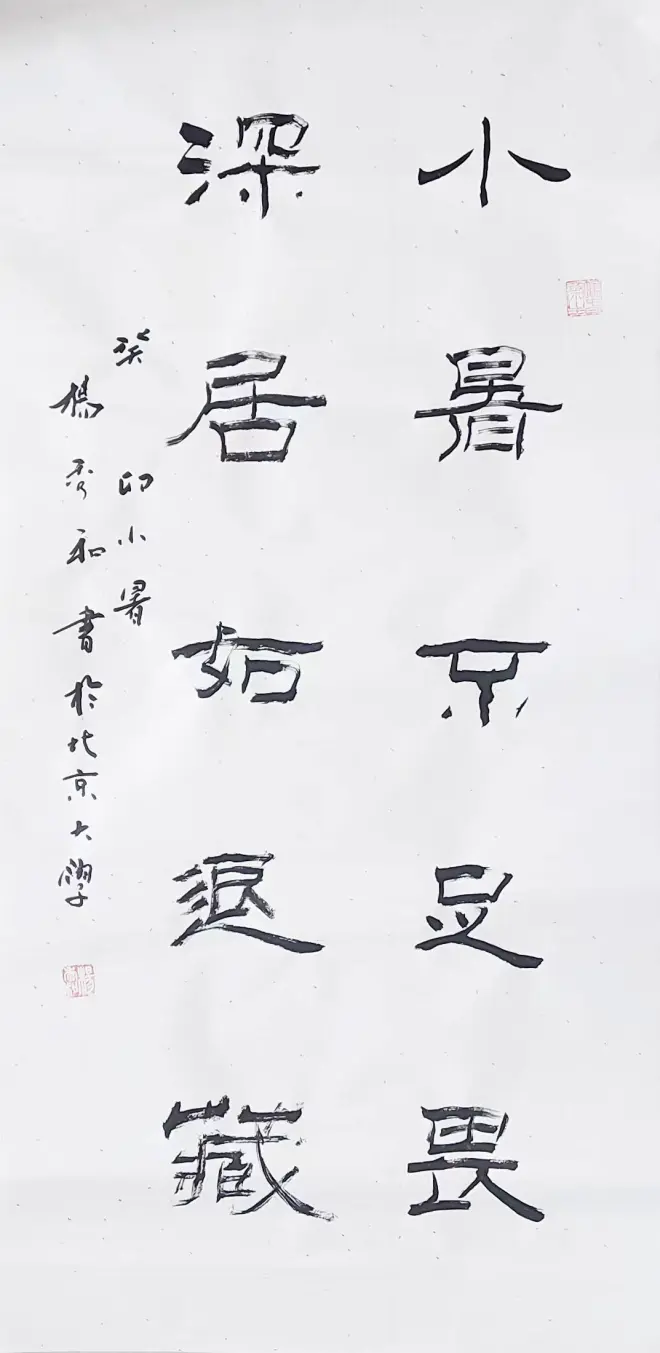 小暑不足畏
深居如退藏
癸卯小暑
楊秀和書於北京大學